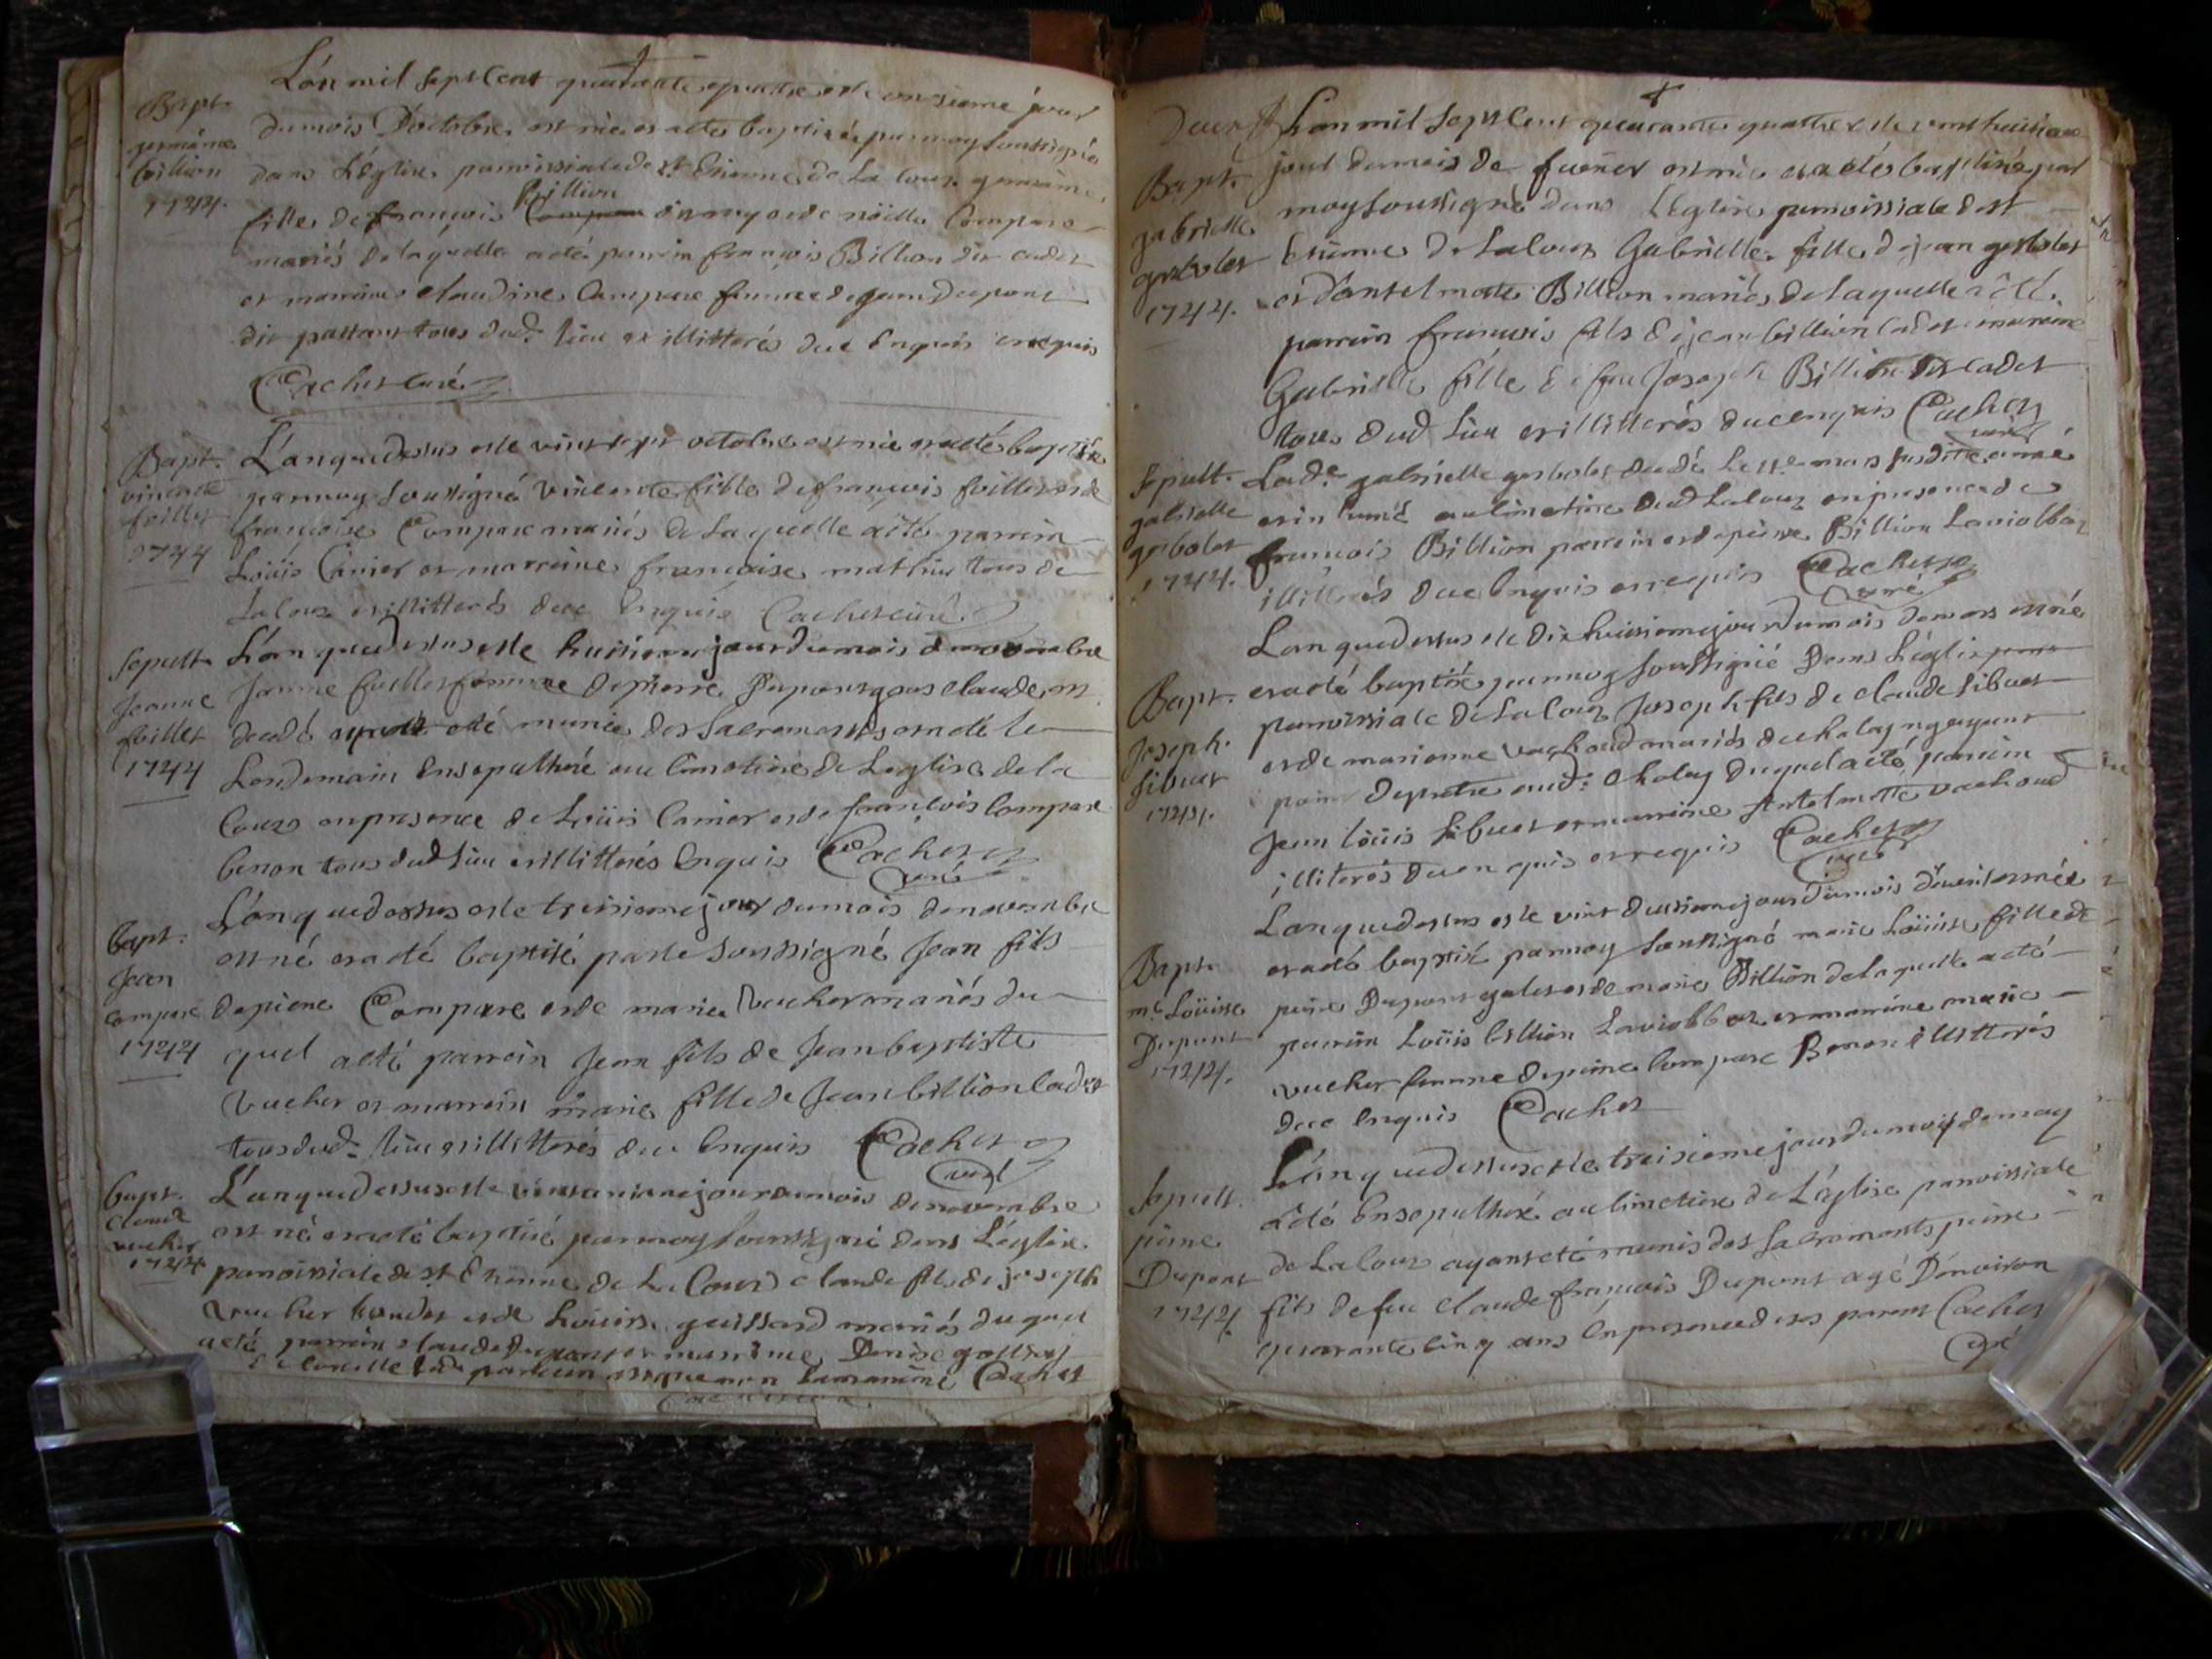 L'an mil sept cent quarante quatre et le onsieme jour
Bapt.
germaine
billion
1744.
du mois D'octobre est née et a ete baptisée par moy soussigné
dans L'Eglise paroissiale de st Etienne de La Cour germaine
fille de françois Billion et de noëlle Compare
mariés de laquelle a eté parrein françois Billion dit cadet
et marraine claudine Compare femme de jean Dupont
dit passant tous dud. lieu et illitterés de ce Enquis et requis
Cachet curé
Bapt.
vincente
foillet
1744
L'an que dessus et le vint sept octobre est née et a eté baptisée
par moy soussigné vincente fille de françois foillet et de
françoise Compare mariés de Laquelle a eté parrein
Loüis Canier et marreine françoise mathieu tous de
La Cour et illitterés de ce Enquis Cachet curé
Sepult.
Jeanne
foillet
1744
L'an que dessus et le huitieme jour du mois de novembre
Jeanne foillet femme de pierre Dupont gros claude est
decedé eté munie des Sacrements et a eté le
Lendemain Ensepulthuré au Cimetiere de L'eglise de la
Cour en presence de Loüis Canier et de françois Compare
benon tous dud lieu et illitterés Enquis Cachet
curé
bapt.
Jean
compare
1744
L'an que dessus et le treisieme jour du mois de novembre
est né et a eté baptisé par le soussigné Jean fils
de piere Compare et de marie Vucher mariés du
quel a eté parrein Jean fils de Jean baptiste
Vucher et marrein marie fille de Jean billion cadet
tous dud. lieu et illitterés de ce Enquis Cachet
curé
bapt.
claude
vucher
1744
L'an que dessus et le jour du mois de novembre
est né et a eté baptisé par moy soussigné dans L'église
paroissiale de st Etienne de La Cour claude fils de joseph
Vucher et de Loüise guissard mariés du quel
a eté parrein claude Dupont et marreine Denise
parrein et la marreine Cachet
L'an mil sept Cent quarante quatre et le vint huitieme
Bapt.
gabrielle
gerbolet
1744.
jour du mois de fuerier est née et a eté baptisée par
moy soussigné dans L'Eglise paroissiale de st
Etienne de La Cour Gabrielle fille de jean gerbolet
et d'antelmette Billion mariés de laquelle a eté
parrein françois fils de jean billion cadet marreine
Gabrielle fille de feu Joseph Billion dit cadet
tous dud lieu et illitterés de ce enquis Cachet
curé
Sepult.
gabrielle
gerbolet
1744.
Lade. gabrielle gerbolet decedé Le mars susdite année
et inhumé au cimetiere dud La Cour en presence de
françois Billion parrein et de pierre Billion
illitterés de ce Enquis et requis Cachet
curé
Bapt.
Joseph
sibuet
1744.
L'an que dessus et le dixhuitieme jour du mois de mars est né
et a eté baptisé par moy soussigné Dans L'églis
paroissiale de La Cour Joseph fils de claude sibuet
et de marianne vachoud mariés de chaley n'y ayant
point de pretre aud. Chaley Duquel a eté parrein
Jean loüis sibuet et marreine Antelmette vachoud
illiterés de ce enquis et requis Cachet
curé
Bapt.
me. Loüise
Dupont
1744.
L'an que dessus et le vint deusieme jour du mois d'avril est née
et a eté baptisé par moy soussigné marie Loüise fille de
piere Dupont galet et de marie Billion de laquelle a eté
parrein Loüis billion et marreine marie
vucher femme de piere Compare Benon illitterés
de ce Enquis Cachet
Sepult.
pierre
Dupont
1744.
L'an que dessus et le treisieme jour du mois de may
a eté Ensepulthuré au Cimetiere de L'église paroissiale
de La Cour ayant eté munis des Sacrements pierre
fils de feu claude françois Dupont agé D'environ
quarante cinq ans En presence de ses parens Cachet
curé